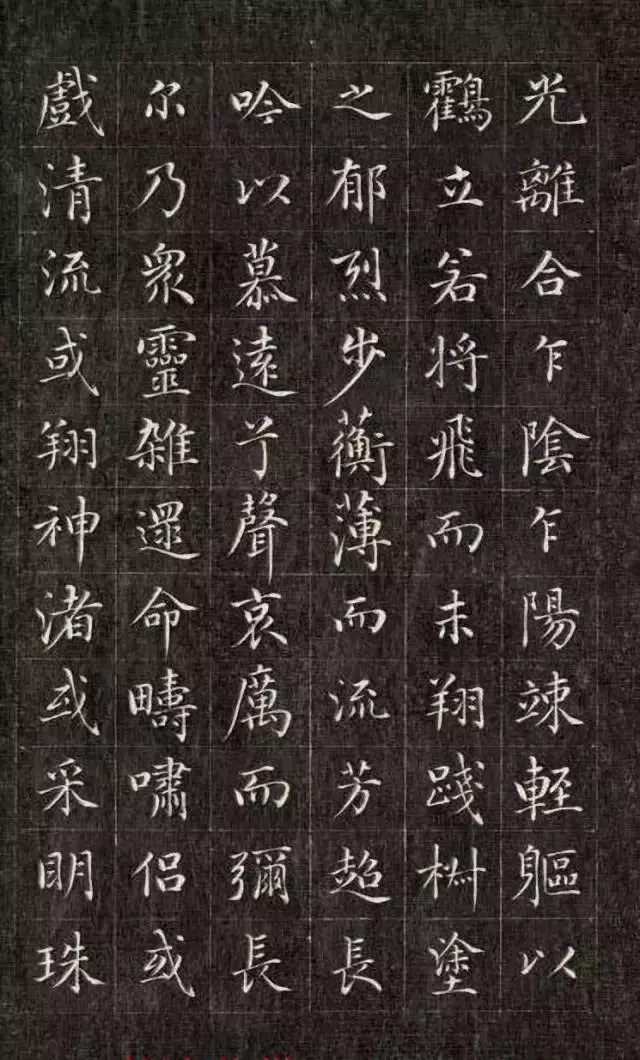 光離合乍陰乍陽竦軽軀以
鸖立若将飛而未翔踐椒塗
之郁烈步蘅薄而流芳超長
吟以慕遠兮聲哀厲而彌長
尔乃衆靈雜遝命疇嘯侣或
戲清流或翔神渚或采明珠